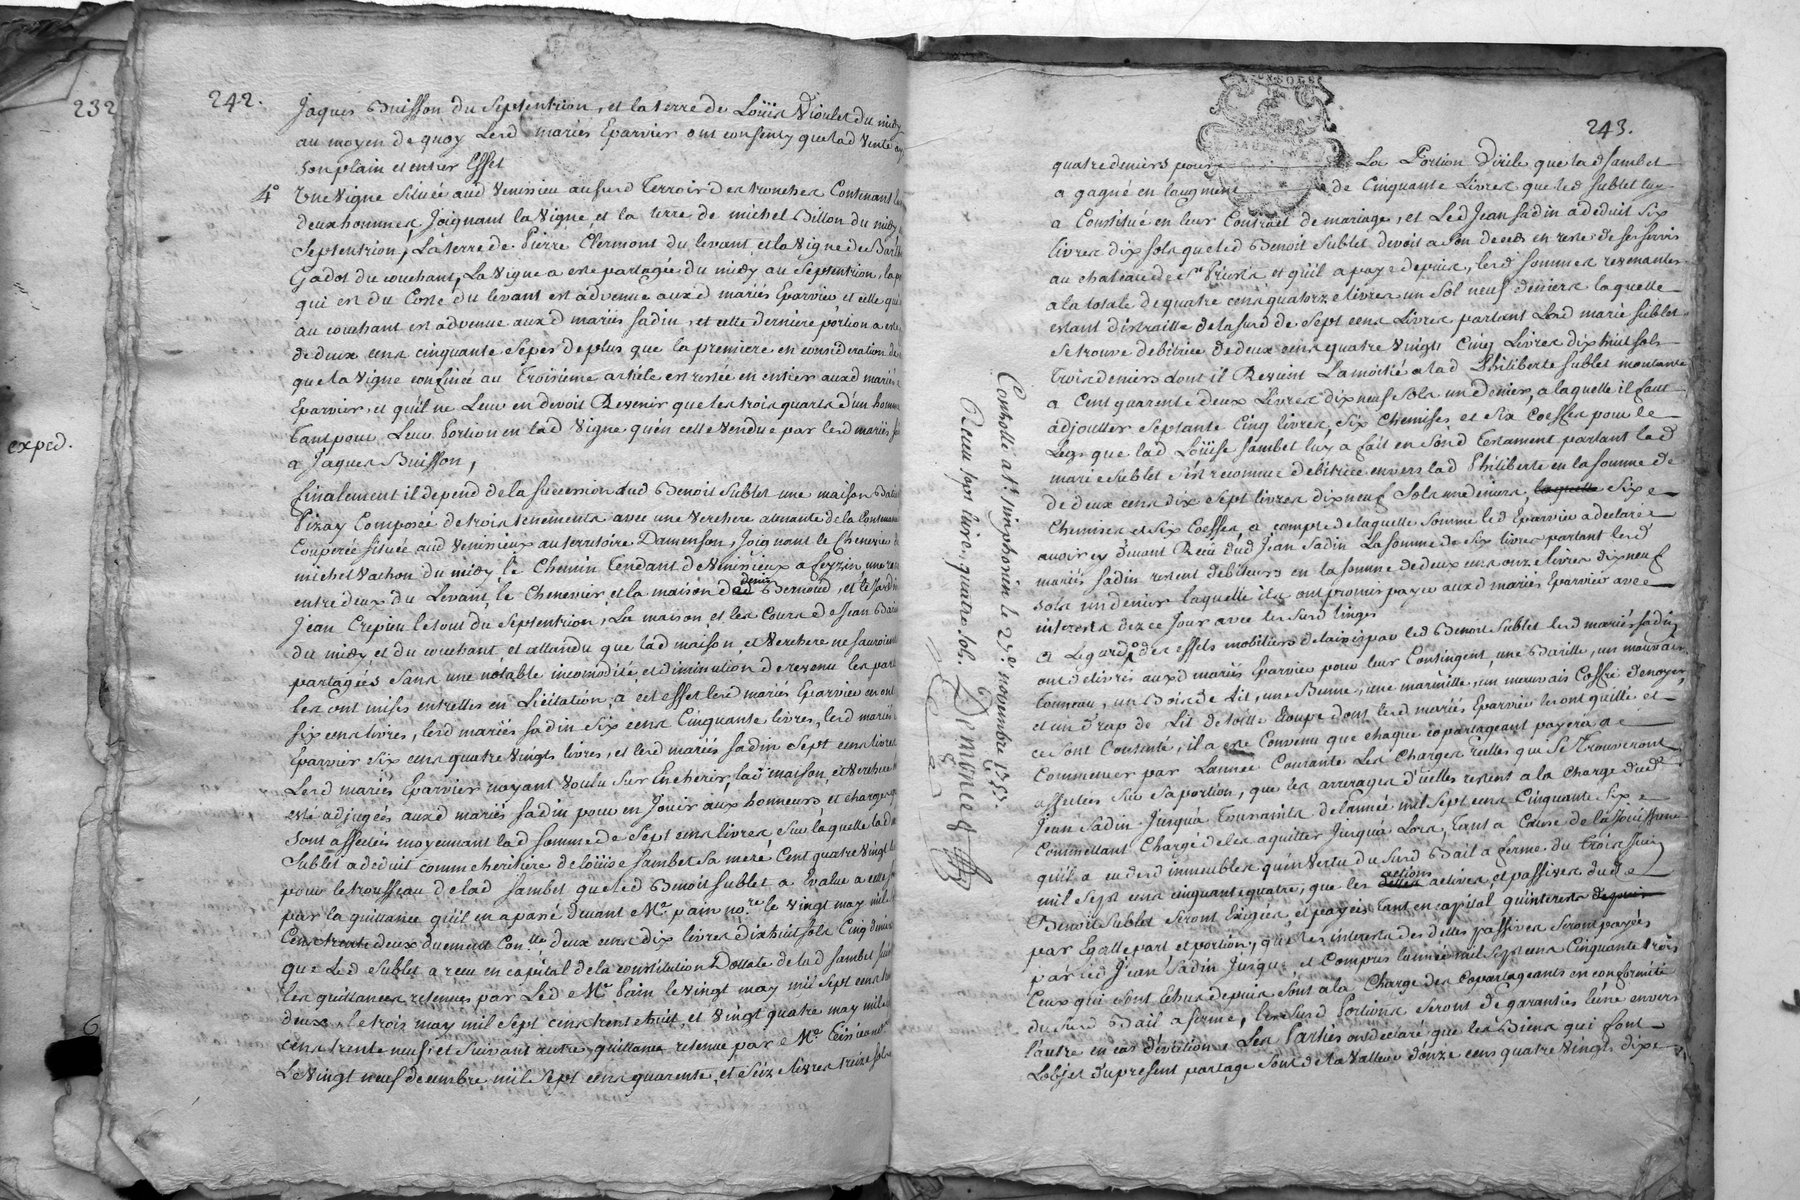 232
exped.
242.
Jaques Buisson du Septentrion, et la terre de Loüis Violet du midy
au moyen de quoy lesd mariés Eparvier ont consenty que lad vente ay
son plain et entier Effet
4° Une vigne Située aud Venissieu au susd Terroir des tronches Contenant
deux hommes, Joignant la vigne et la terre de michel Billon du midy
Septentrion, La terre de Pierre Clermont du levant et la vigne de
Gadot du couchant, La vigne a esté partagée du midy au Septentrion, la
qui est du Costé du levant est advenue auxd mariés Eparvier et celle qui
au couchant est advenue auxd mariés Sadin, et cette derniere portion a esté
de deux cens cinquante Sepes de plus que la premiere en consideration de
que la vigne confinée au Troisieme article est restée en entier auxd mariés
Eparvier, et qu'il ne Leur en devoit Revenir que les trois quarts d'un homme
tant pour Leur Portion en lad vigne qu'en celle vendue par lesd mariés
a Jaques Buisson,
finalement il depend de la succession dud Benoit Sublet une maison
Pizay Composée de trois tenements avec une verchere atenante de la Contenue
Couperée Située aud Venissieux au territoire Damenson, Joignant le Chenevier
michel Vachon du midy, le Chemin tendant de Venissieux a feyzin une
entre deux du Levant, le Chenevier et la maison de denis Bernoud, et le Jardin
Jean Crepieu le tout du Septentrion, La maison et les Cours de Jean
du midy et du couchant, et attandu que lad maison, et Verchere ne sauroient
partagées Sans une nôtable incomodité, et diminution de revenu les part
les ont mises entrelles en Licitation, a cet effet lesd mariés Eparvier en ont
Six cens livres, lesd mariés Sadin Six cens Cinquante livres, lesd mariés
Eparvier Six cens quatre vingts livres, et lesd mariés Sadin Sept cens livres
Lesd mariés Eparvier n'ayant voulu Sur Encherir, lad maison, et verchere
esté adjugés auxd mariés Sadin pour en Jouir aux honneurs et charges
Sont affectées moyennant lad Somme de Sept cens livres, Sur laquelle lad
Sublet a deduit comme heritiere de loüise Sambet Sa mere, Cent quatre vingt
pour le trousseau de lad Sambet que led Benoit Sublet a Evalué a cette
par la quittance qu'il en a passé devant Me pain nore le vingt may mil
Cens trente deux duement Conlle deux cens dix livres dixhuit sols Cinq deniers
que Led Sublet a receu en capital de la constitution Dottale de lad Sambet
les quittances retenues par Led Me Pain le vingt may mil Sept cens
deux, le trois may mil Sept cens trente huit, et vingt quatre may mil
cens trente neuf, et Suivant autre quittance retenue par Me
Le vingt neuf decembre mil Sept cens quarente, et Seize livres treize Sols
Controllé a St Simphorien le 25e novembre 1753.
Receu sept livre, quatre sols.
243.
quatre deniers pour La Portion Virile que lad Sambet
a gagné en laugment de Cinquante Livres que led Sublet luy
a Constitué en leur Contract de mariage, et Led Jean Sadin a deduit Six
livres dix sols que led Benoit Sublet devoit a Son deces en reste de ses servis
au chateau de St Priest et qu'il a payé depuis, lesd sommes revenantes
a la totale de quatre cens quatorze livres un Sol neuf deniers laquelle
estant distraitte de la susd de Sept cens Livres partant Lesd marie Sublet
Se trouve debitrice de deux cens quatre vingts Cinq Livres dixhuit sols
trois deniers dont il Revient La moitié a lad Philiberte Sublet montante
a Cent quarente deux Livres dix neuf Sols un denier, a laquelle il faut
adjoutter Septante Cinq livres, Six Chemises et Six Coeffes pour le
Legs que lad Loüise Sambet luy a fait en Sond Testament partant lad
marie Sublet s'est reconnue debitrice envers lad Philiberte en la somme de
de deux cens dix sept livres dix neuf Sols un denier, laquelle Six
Chemises et Six Coeffes, a compte de laquelle Somme led Eparvier a declaré
avoir cy devant Receu dud Jean Sadin La Somme de Six livres partant lesd
mariés Sadin restent debiteurs en la Somme de deux cens onze livres dix neuf
sols un denier laquelle ils ont promis payer auxd mariés Eparvier avec
interests dez ce Jour avec les Susd linges
a Legard des effets mobiliers delaissés par led Benoit Sublet lesd mariés Sadin
ont delivré auxd mariés Eparvier pour leur Contingent, une Barille, un mauvais
tonneau, un Bois de Lit, une Benne, une marmitte, un mauvais Coffre de noyer,
et un drap de Lit de toille Etoupe dont lesd mariés Eparvier les ont quitté et
ce sont Contenté, il a esté Convenu que chaque copartageant payera a
Commencer par Lannee Courante les charges réelles qui Se trouveront
affectées Sur Sa portion, que les arrerages d'icelles restent a la charge dud
Jean Sadin Jusqua Toussaints de l'année mil Sept cens Cinquante Six
Commettant Chargé de les aquitter Jusqua Lors, tant a Cause de la Joüissance
qu'il a eu desd immeubles qu'en vertu du Susd Bail a ferme du troisieme
mil Sept cens cinquante quatre, que les dettes actions actives, et passives dud
Benoit Sublet Seront Exigées, et payées tant en capital qu'interests depuis
par Egalle part et portion, que les interests des dettes passives Seront payés
par led Jean Sadin Jusques et Compris lannée mil Sept cens Cinquante trois
Ceux qui Sont Echus depuis Sont a la Charge des Copartageants en conformité
du Susd Bail a ferme, les Susd Portions Seront de garanties l'une envers
l'autre en cas d'eviction. Les Parties ont declaré que les Biens qui font
Lobjet du present partage Sont de la valleur d'onze cens quatre vingts dix